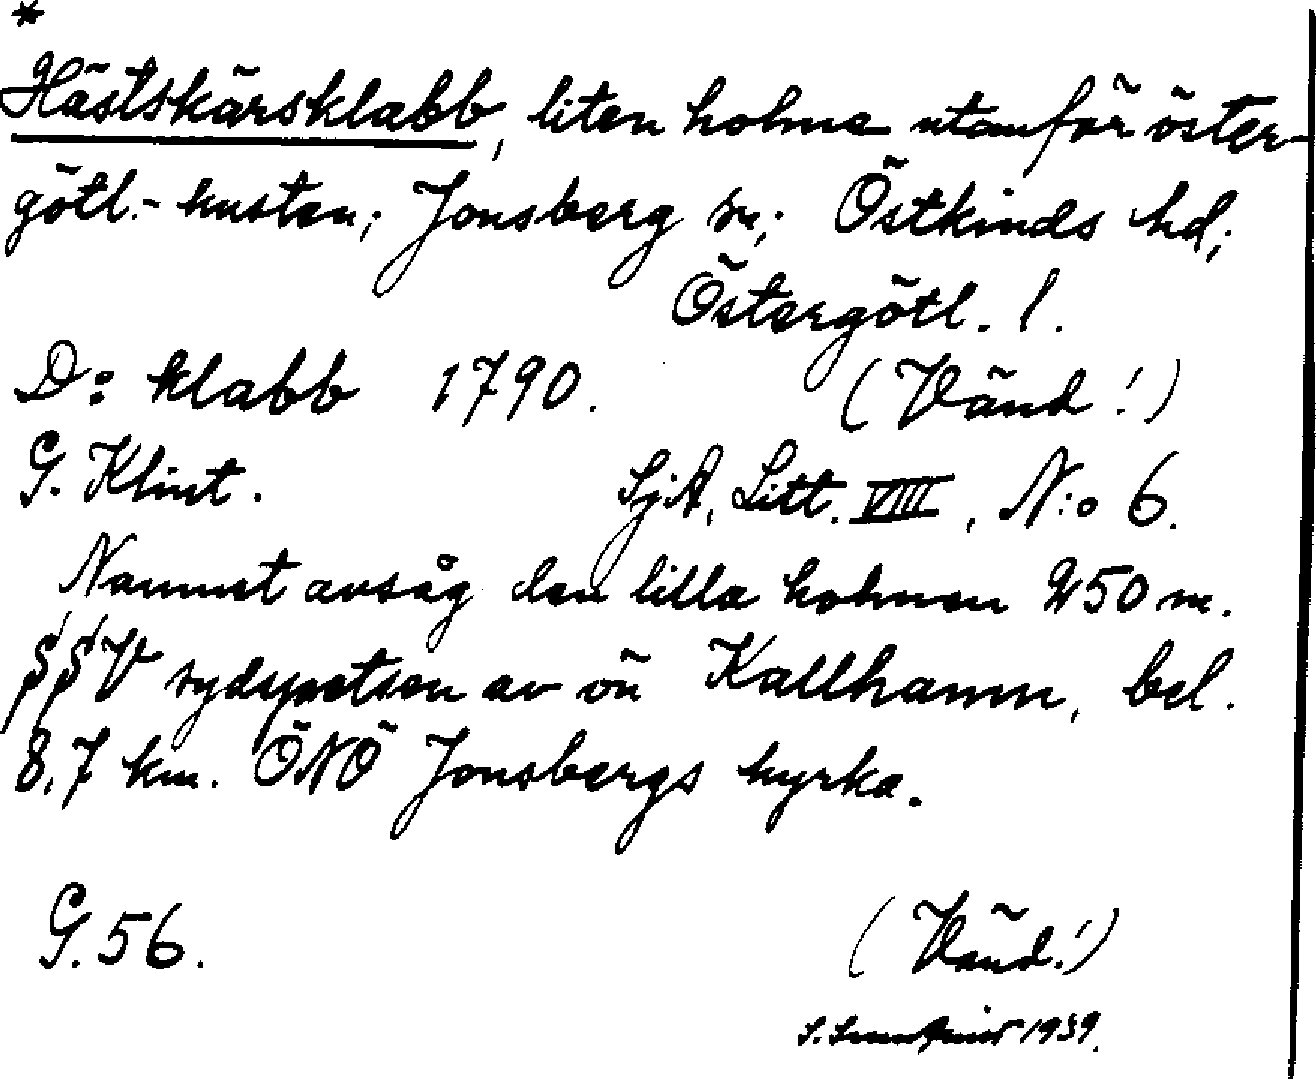 *
Hästskärsklabb, liten holme utanför öster-
götl.- kusten; Jonsberg sn; Östkinds hd;
Östergötl. l.
D:o klabb 1790. (Vänd!)
G. Klint. SjA, Litt. VIII, N:o 6.
Namnet avsåg den lilla holmen 250 m.
SSV sydspetsen av ön Kallhamn, bel.
8,7 km. ÖNÖ Jonsbergs kyrka.
G. 56. (Vänd!)
1939.